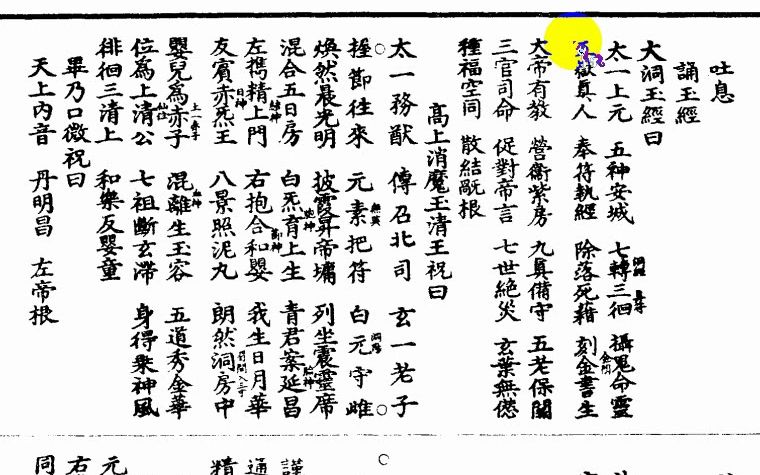 吐息
誦玉經
大洞玉經曰
太一上元　五神安城　七轉三徊　攝䰟命靈
獄真人　奉符執經　除落死藉　刻金書生
大帝有教　營衛紫房　九真備守　五老保關
三官司命　促對帝言　七世絶災　玄葉無𠎝
種福空同　散結䟽根
高上消魔玉清王祝曰
太一務猷　傳召北司　玄一老子
握節往來　元素把符　白元守雌
煥然晨光明　披霞昇帝墉　列坐震靈席
混合五日房　白炁育上生　青君案延昌
左攜精上門　右抱合和嬰　我生日月華
友賓赤炁王　八景照泥丸　朗然洞房中
嬰兒為赤子　混離生玉容　五道秀金華
位為上清公　七祖斷玄滯　身得乘神風
徘徊三清上　和樂反嬰童
畢乃口微祝曰
天上內音　丹明昌　左帝根
元
通
精
右
同